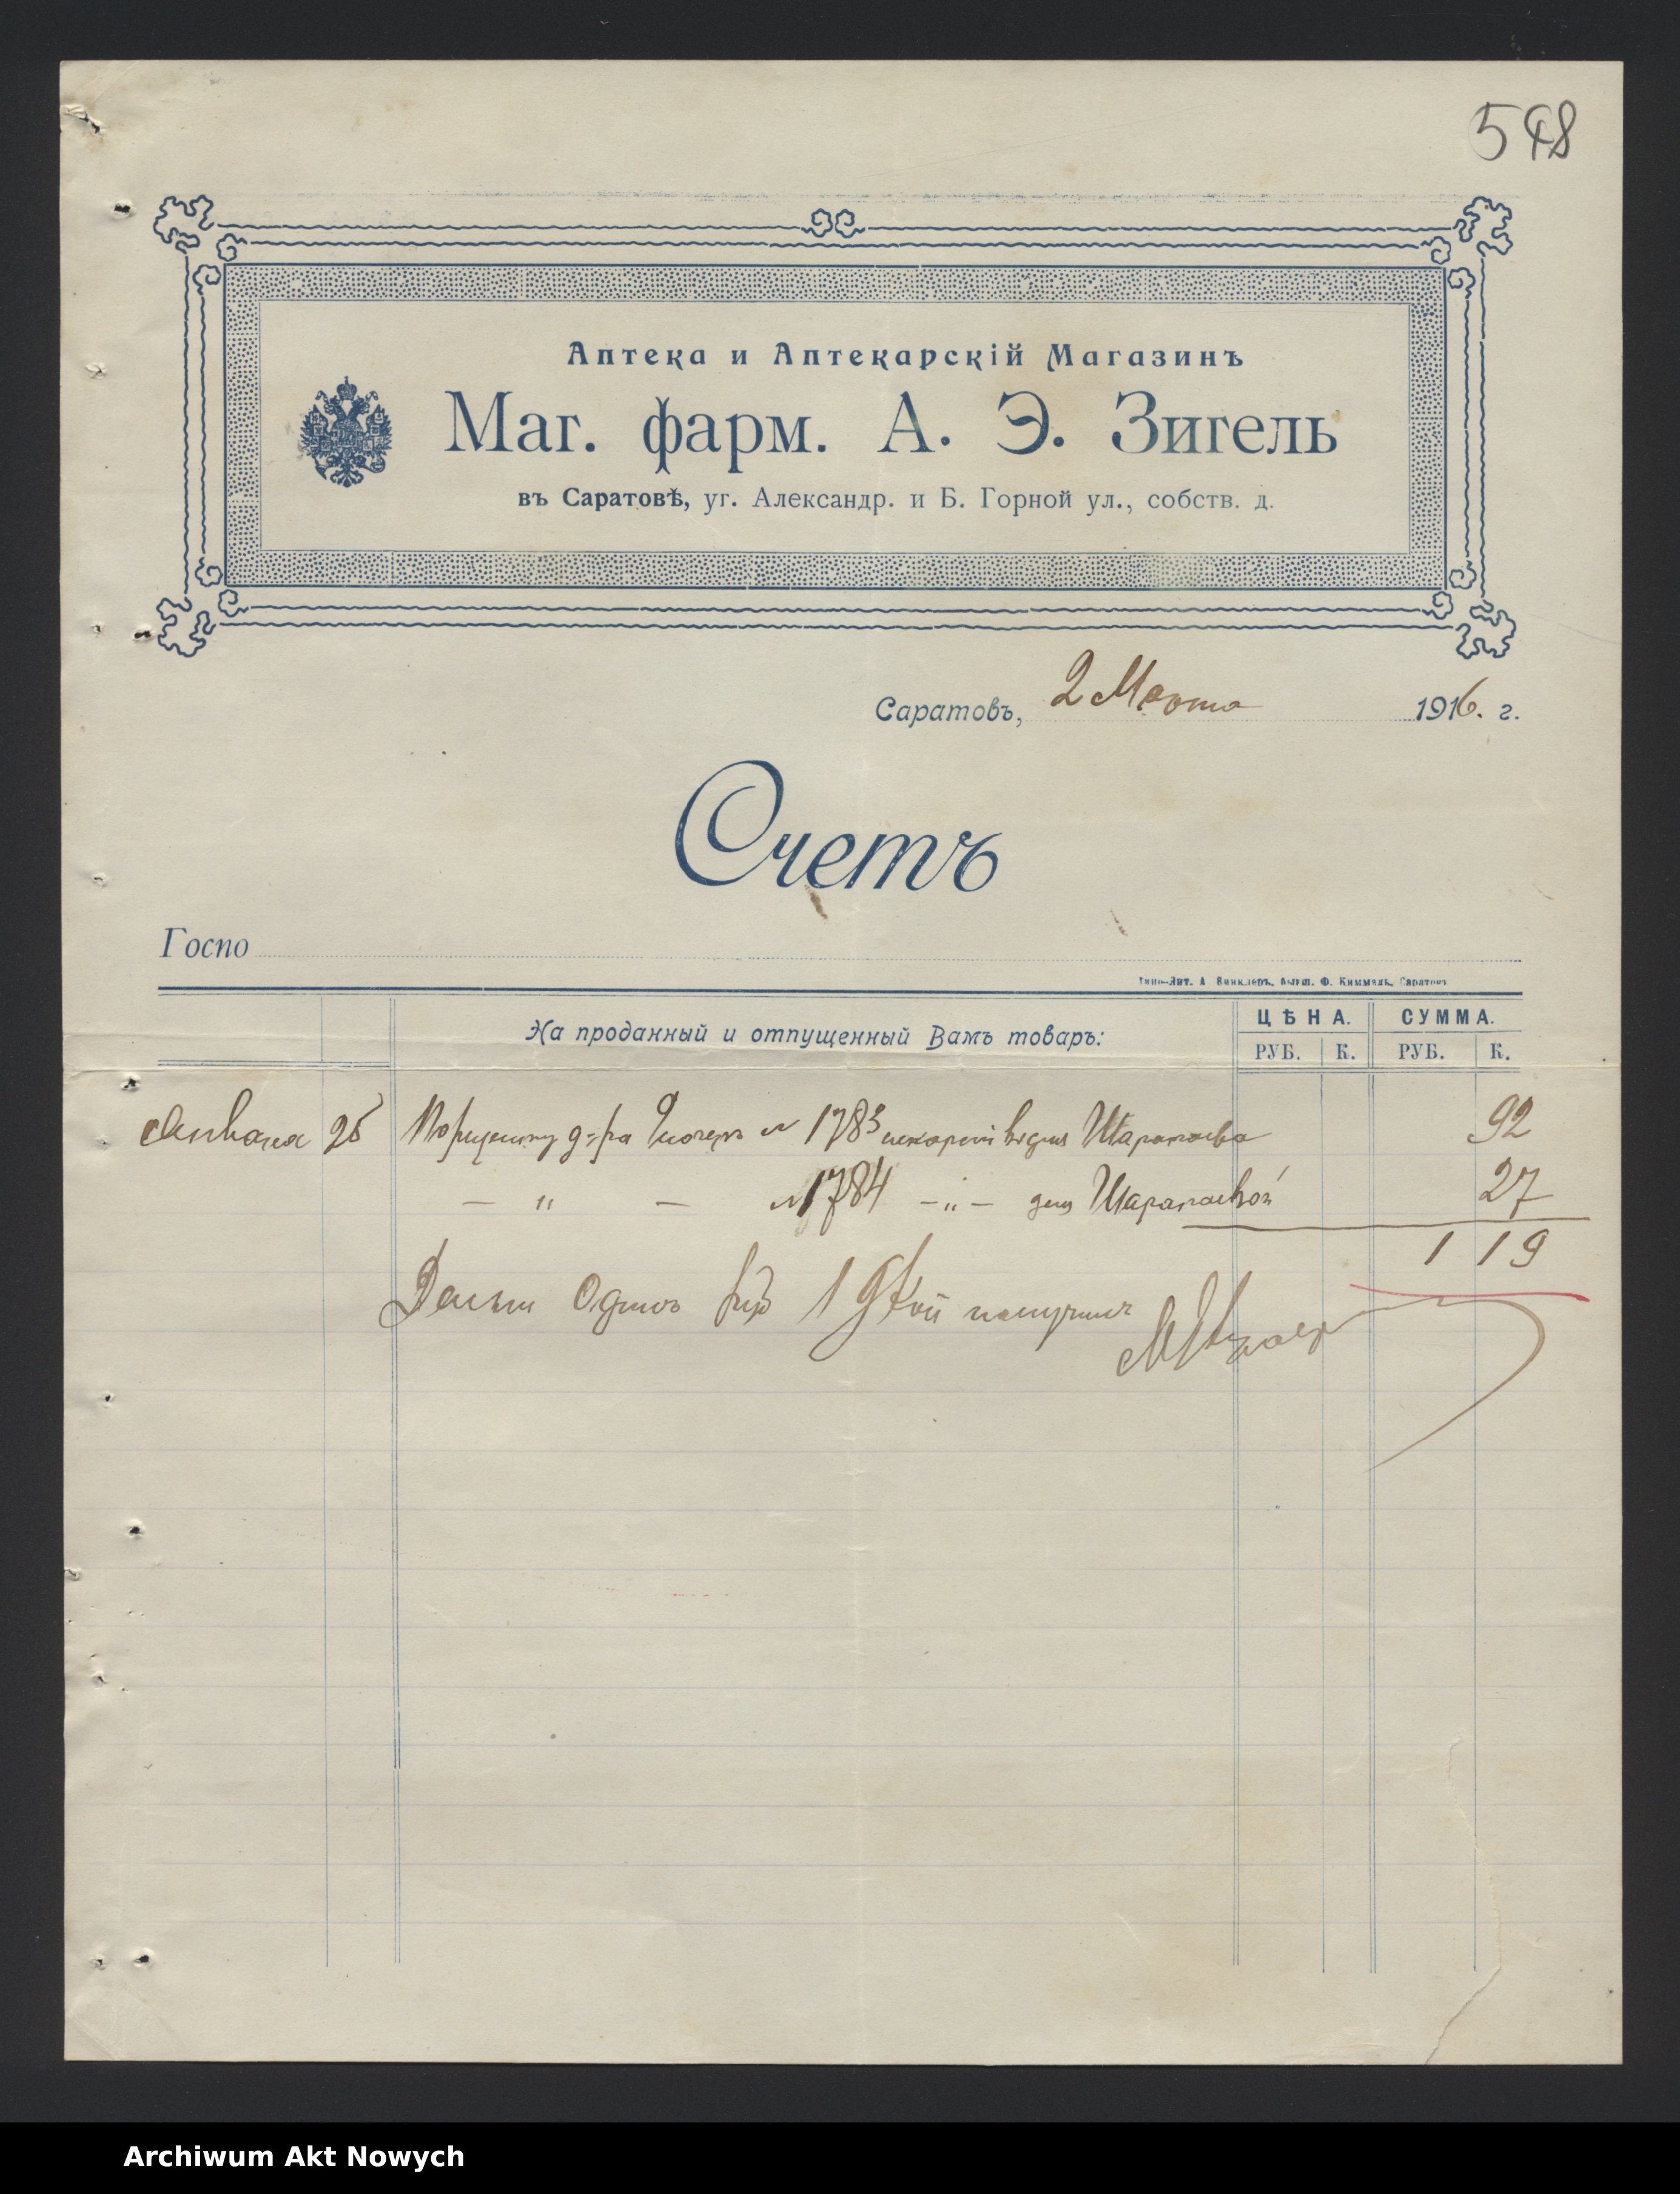 548
Аптека и Аптекарскій Магазинъ
Маг. фарм. А. Э. Зигель
въ Саратовѣ, уг. Александр. и Б. Горной ул., собств. д.
Саратовъ, 2 Марта 1916. г.
Счетъ
Госпо
Типо-Лит. А. Винклеръ, бывш. Ф. Киммель, Саратовъ
На проданный и отпущенный Вамъ товаръ:
ЦѢНА. СУММА.
РУБ. К. РУБ. К.
Января 26 По рецепту д-ра № 1783 для Шарапова 92
— " — № 1784 — " — для Шараповой 27
1 19
Деньги Одинъ руб 19 коп получилъ
Archiwum Akt Nowych